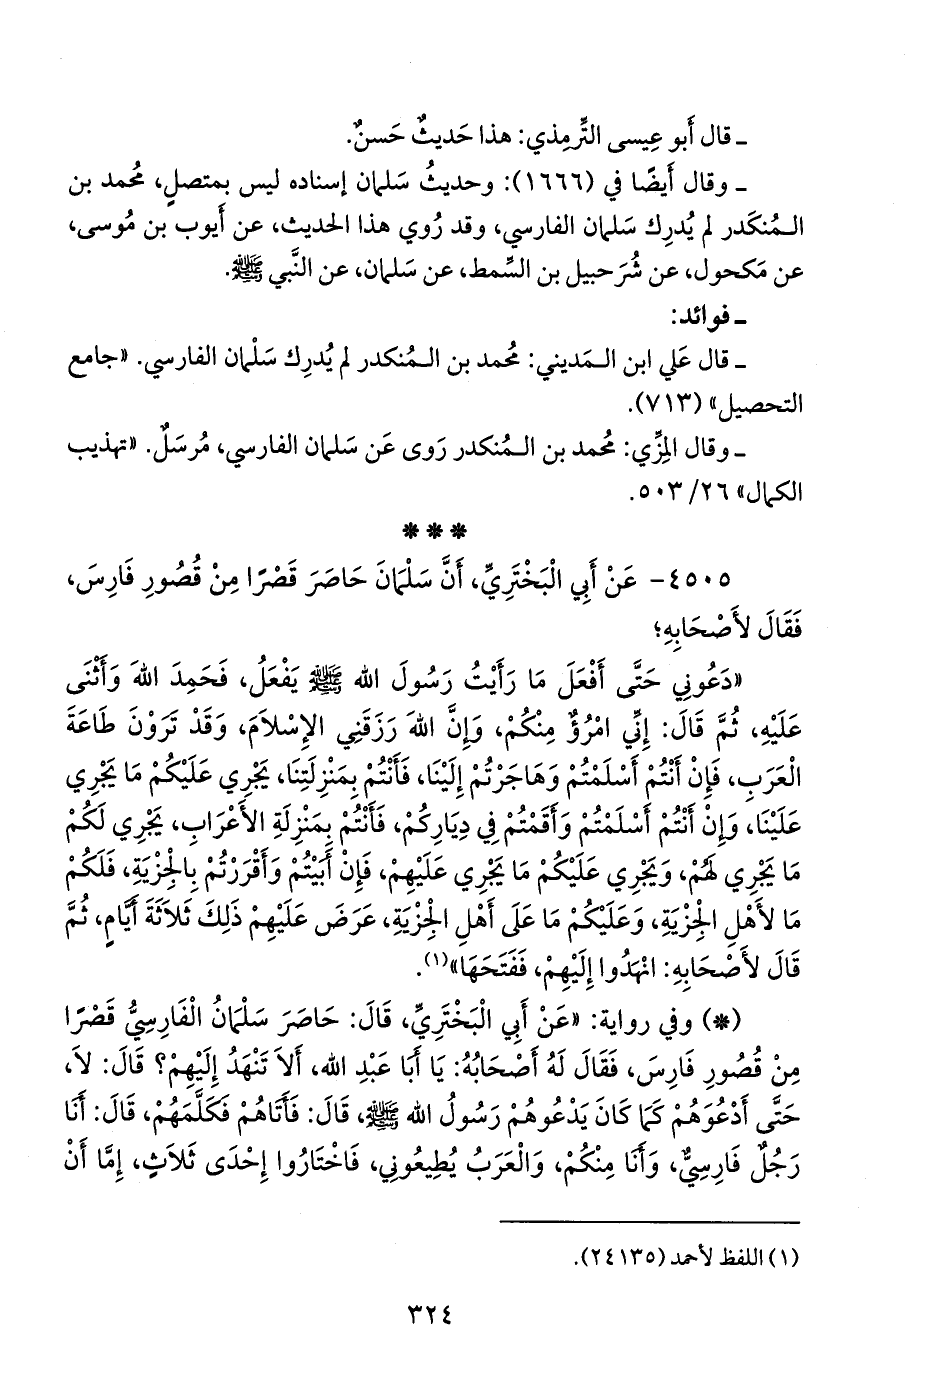 ـ قال أَبو عِيسى التِّرمِذي: هذا حَديثٌ حَسنٌ.
ـ وقال أَيضًا في (١٦٦٦): وحديثُ سَلمان إسناده ليس بمتصلٍ، مُحمد بن
الـمُنكَدر لم يُدرِك سَلمان الفارسي، وقد رُوي هذا الحديث، عن أَيوب بن مُوسى،
عن مَكحول، عن شُرَحبيل بن السِّمط، عن سَلمان، عن النَّبي ﷺ.
ـ فوائد:
ـ قال عَلي ابن الـمَديني: مُحمد بن الـمُنكدر لم يُدرِك سَلْمان الفارسي. «جامع
التحصيل» (٧١٣).
ـ وقال المِزِّي: مُحمد بن الـمُنكدر رَوى عَن سَلمان الفارسي، مُرسَلٌ. «تهذيب
الكمال» ٢٦/ ٥٠٣.
* * *
٤٥٠٥- عَنْ أَبِي الْبَخْتَرِيِّ، أَنَّ سَلْمَانَ حَاصَرَ قَصْرًا مِنْ قُصُورِ فَارِسَ،
فَقَالَ لأَصْحَابِهِ؛
«دَعُونِي حَتَّى أَفْعَلَ مَا رَأَيْتُ رَسُولَ الله ﷺ يَفْعَلُ، فَحَمِدَ اللهَ وَأَثْنَى
عَلَيْهِ، ثُمَّ قَالَ: إِنِّي امْرُؤٌ مِنْكُمْ، وَإِنَّ اللهَ رَزَقَنِي الإِسْلاَمَ، وَقَدْ تَرَوْنَ طَاعَةَ
الْعَرَبِ، فَإِنْ أَنْتُمْ أَسْلَمْتُمْ وَهَاجَرْتُمْ إِلَيْنَا، فَأَنْتُمْ بِمَنْزِلَتِنَا، يَجْرِي عَلَيْكُمْ مَا يَجْرِي
عَلَيْنَا، وَإِنْ أَنْتُمْ أَسْلَمْتُمْ وَأَقَمْتُمْ فِي دِيَارِكُمْ، فَأَنْتُمْ بِمَنْزِلَةِ الأَعْرَابِ، يَجْرِي لَكُمْ
مَا يَجْرِي لَهُمْ، وَيَجْرِي عَلَيْكُمْ مَا يَجْرِي عَلَيْهِمْ، فَإِنْ أَبَيْتُمْ وَأَقْرَرْتُمْ بِالْجِزْيَةِ، فَلَكُمْ
مَا لأَهْلِ الْجِزْيَةِ، وَعَلَيْكُمْ مَا عَلَى أَهْلِ الْجِزْيَةِ، عَرَضَ عَلَيْهِمْ ذَلِكَ ثَلاَثَةَ أَيَّامٍ، ثُمَّ
قَالَ لأَصْحَابِهِ: انْهَدُوا إِلَيْهِمْ، فَفَتَحَهَا»(١).
(*) وفي رواية: «عَنْ أَبِي الْبَخْتَرِيِّ، قَالَ: حَاصَرَ سَلْمَانُ الْفَارِسِيُّ قَصْرًا
مِنْ قُصُورِ فَارِسَ، فَقَالَ لَهُ أَصْحَابُهُ: يَا أَبَا عَبْدِ الله، أَلاَ تَنْهَدُ إِلَيْهِمْ؟ قَالَ: لاَ،
حَتَّى أَدْعُوَهُمْ كَمَا كَانَ يَدْعُوهُمْ رَسُولُ الله ﷺ، قَالَ: فَأَتَاهُمْ فَكَلَّمَهُمْ، قَالَ: أَنَا
رَجُلٌ فَارِسِيٌّ، وَأَنَا مِنْكُمْ، وَالْعَرَبُ يُطِيعُونِي، فَاخْتَارُوا إِحْدَى ثَلاَثٍ، إِمَّا أَنْ
(١) اللفظ لأحمد (٢٤١٣٥).
٣٢٤